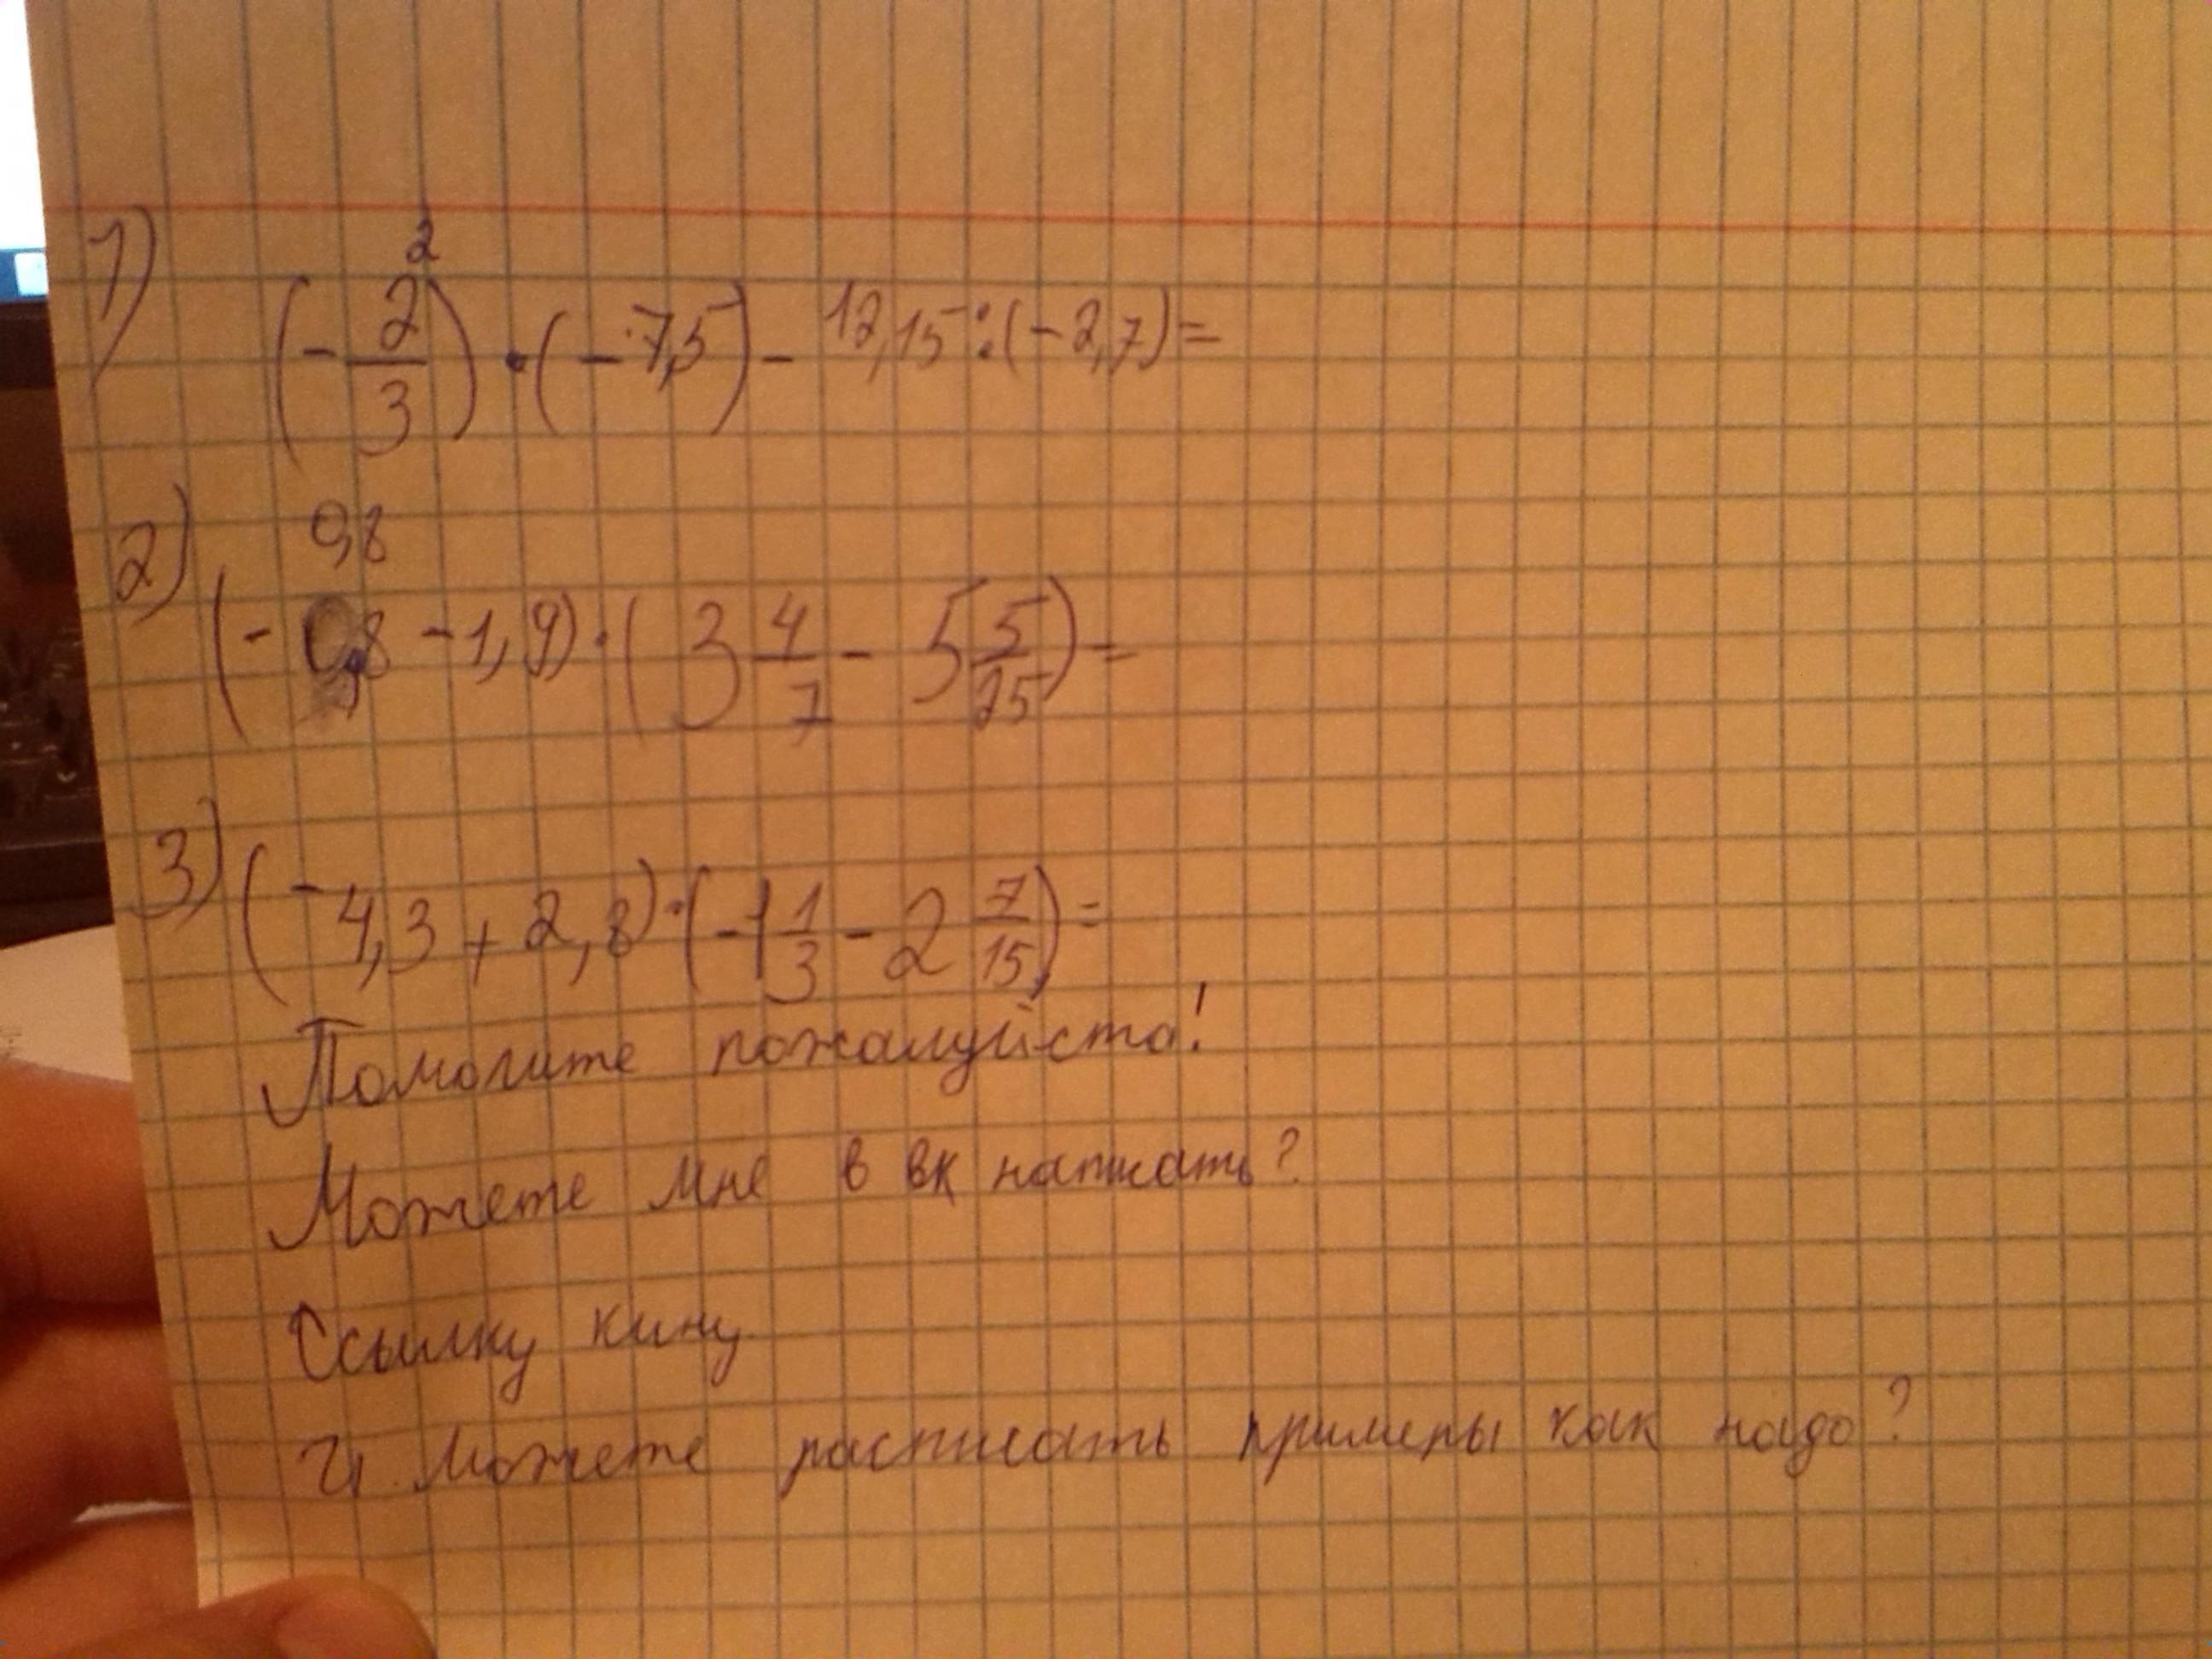 1) (-2/3)² · (-7,5) - 12,15 : (-2,7) =
0,8
2) (-0,8 - 1,9) · (3 4/7 - 5 5/25) =
3) (-4,3 + 2,8) · (-1 1/3 - 2 7/15) =
Помогите пожалуйста!
Можете мне в вк написать?
Ссылку кину
И можете расписать примеры как надо?